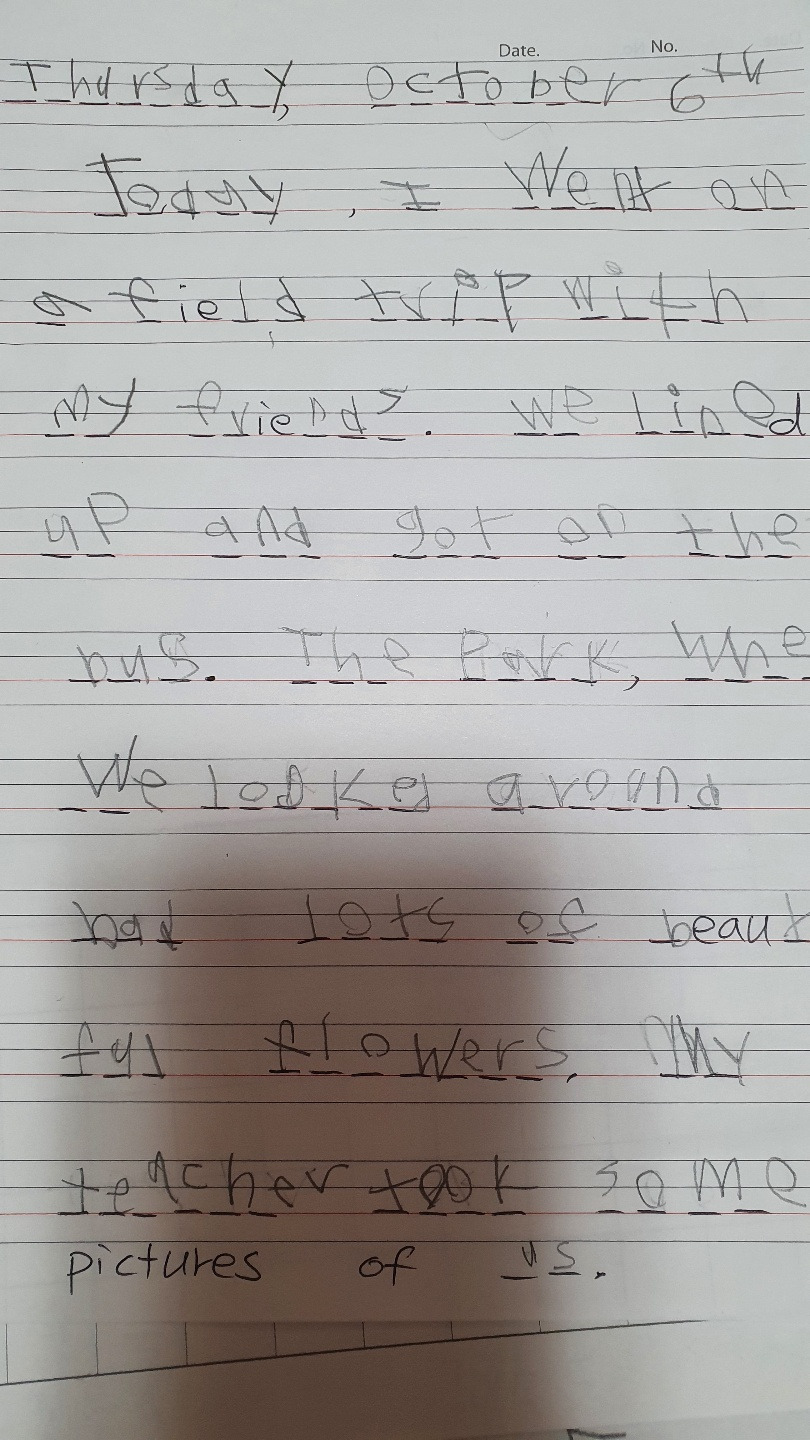 Date. No.
Thursday, October 6th
Today, I Went on
a field trip with
My friends. We lined
up and got on the
bus. The Park, Whe
We looked around
had lots of beaut
ful flowers. My
teacher took some
pictures of us.